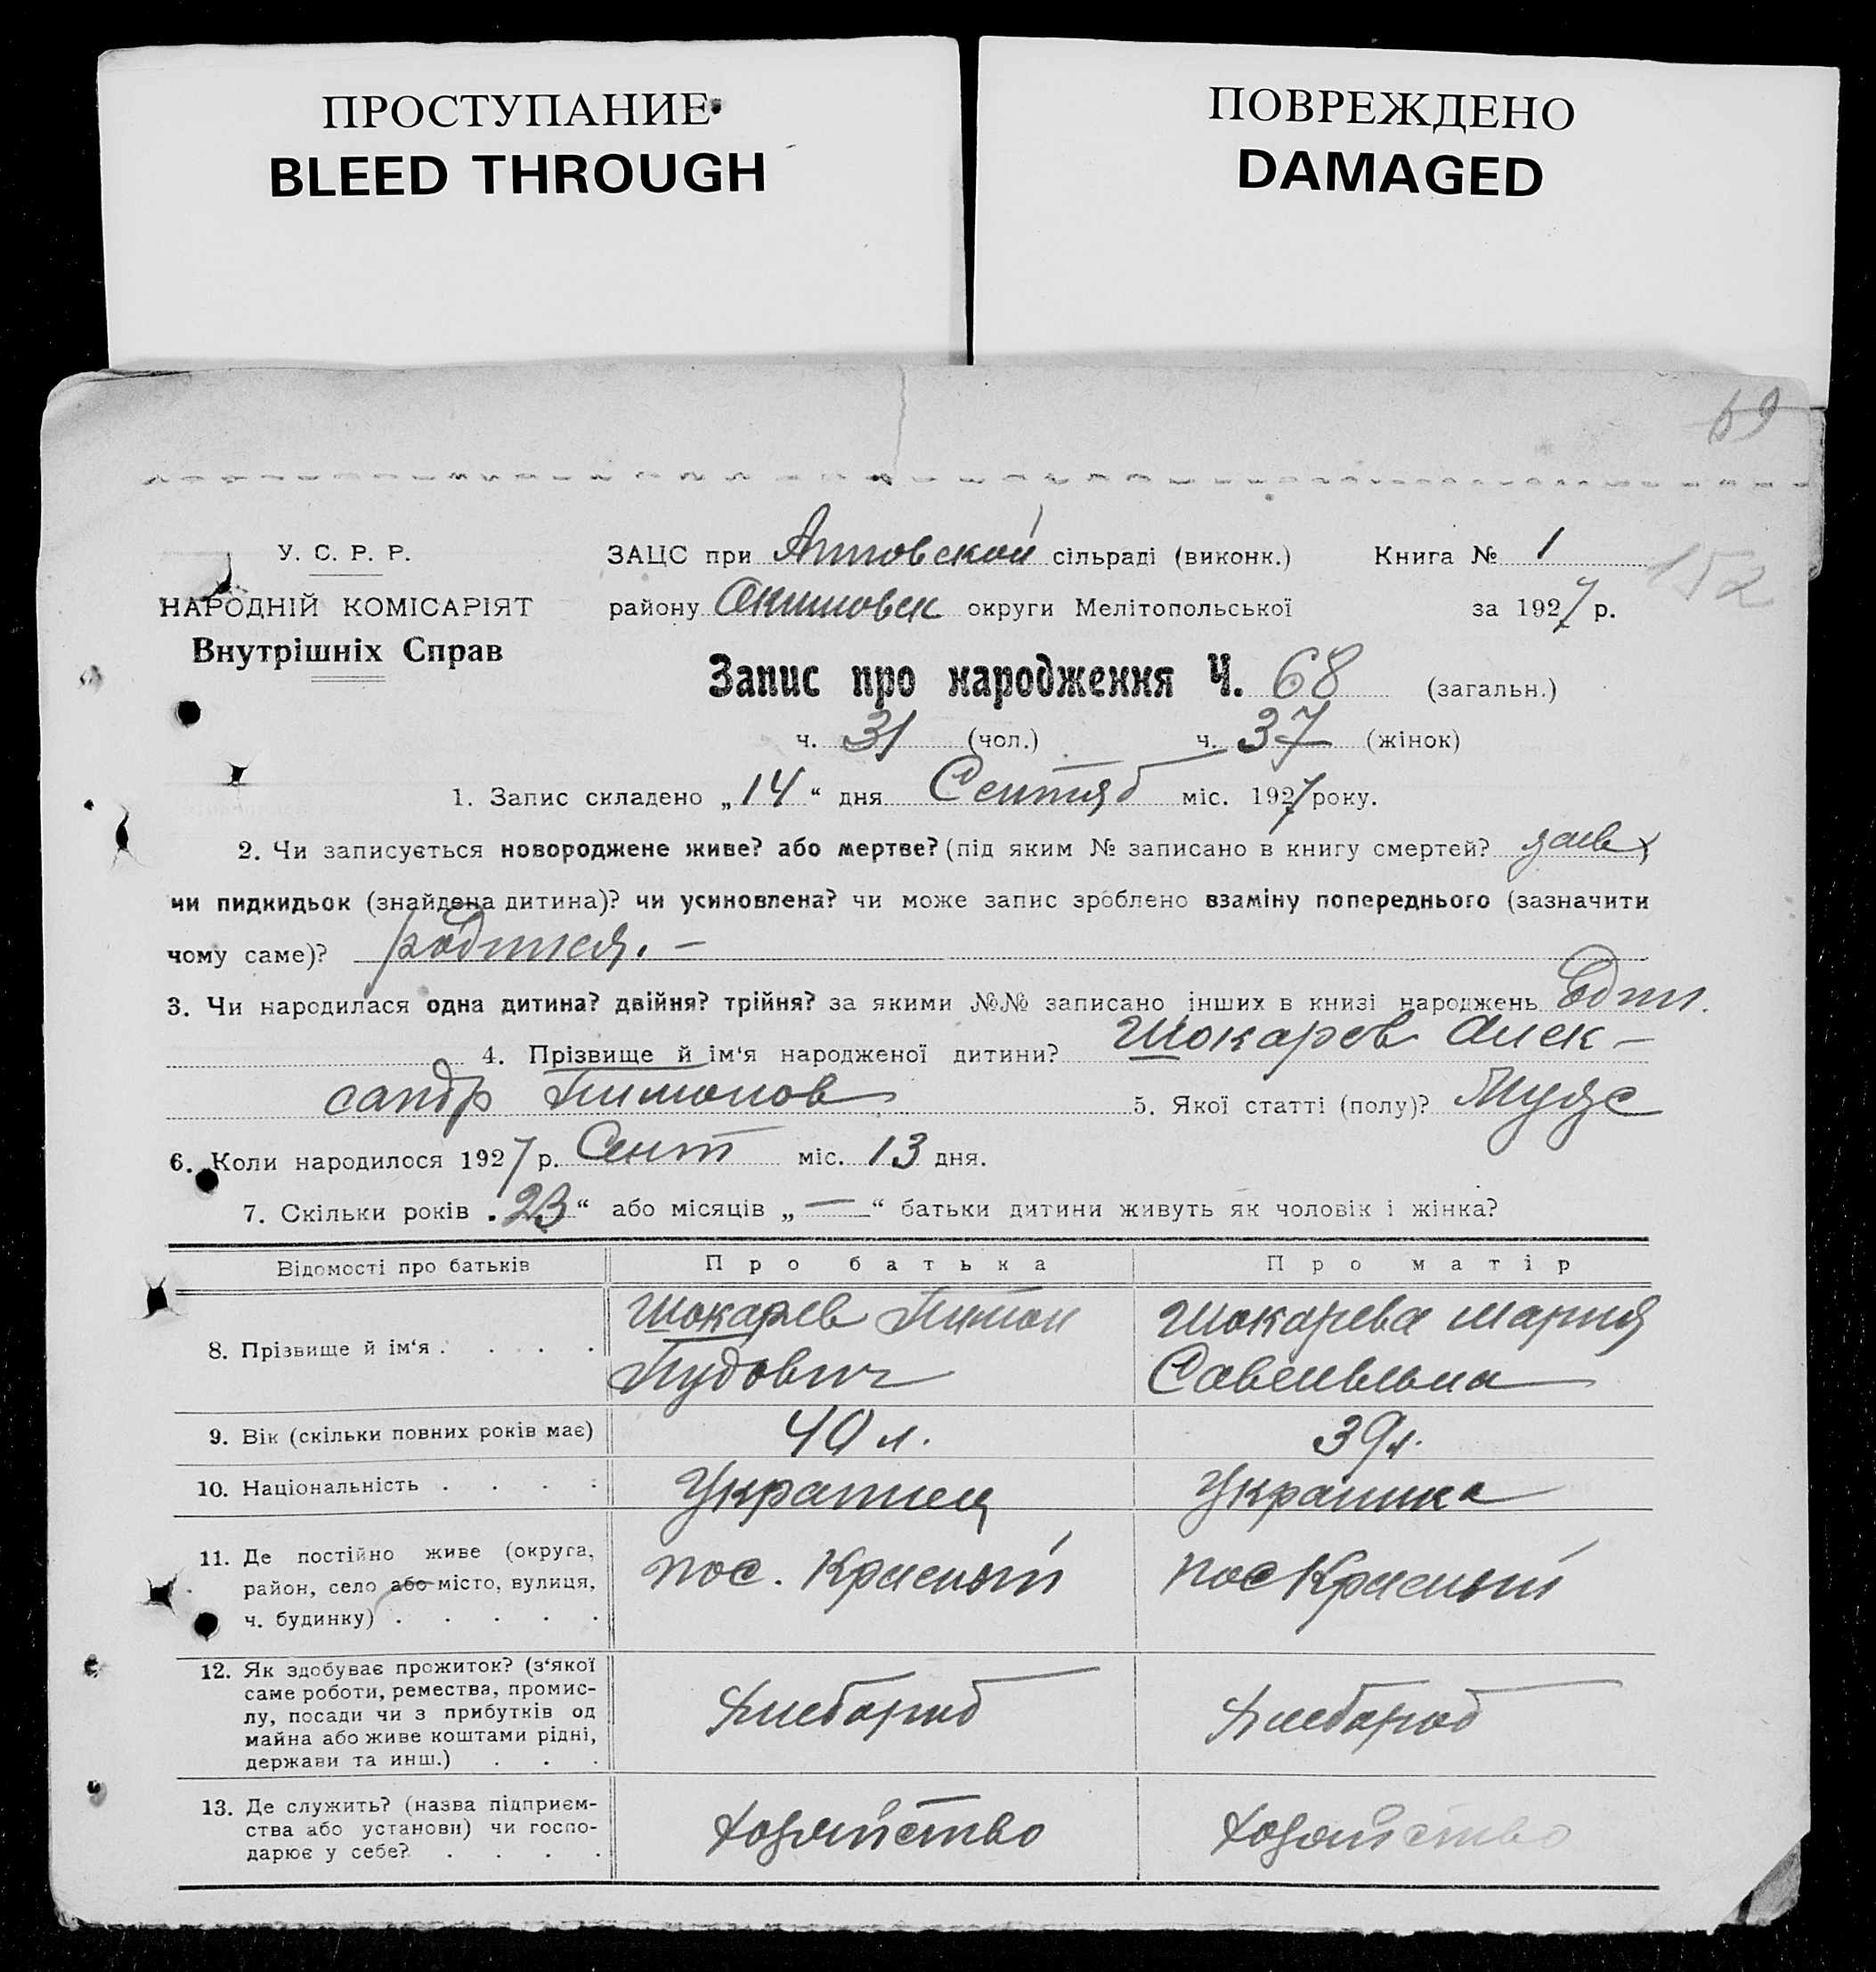 ПРОСТУПАНИЕ
BLEED THROUGH
ПОВРЕЖДЕНО
DAMAGED
69
152
У. С. Р. Р.
НАРОДНІЙ КОМІСАРІЯТ
Внутрішніх Справ
ЗАЦС при сільраді (виконк.) Книга № 1
району Акимовск округи Мелітопольської за 1927 р.
Запис про народження Ч. 68 (загальн.)
ч. 31 (чол.) ч. 37 (жінок)
1. Запис складено „14“ дня Сентяб міс. 1927 року.
2. Чи записується новороджене живе? або мертве? (під яким № записано в книгу смертей?
чи пидкидьок (знайдена дитина)? чи усиновлена? чи може запис зроблено взаміну попереднього (зазначити
чому саме)? родился. —
3. Чи народилася одна дитина? двійня? трійня? за якими №№ записано інших в книзі народжень Один.
4. Прізвище й ім‘я народженої дитини? Шокарев Алек-
сандр Тимонов 5. Якої статті (полу)? Мужс
6. Коли народилося 1927 р. Сент міс. 13 дня.
7. Скільки років „23“ або місяців „—“ батьки дитини живуть як чоловік і жінка?
Відомості про батьків Про батька Про матір
8. Прізвище й ім‘я . . . . .
Шокарев Тимон
Тудович
Шокарева Мария
Савельевна
9. Вік (скільки повних років має) 40 л. 39 л.
10. Національність . . . . Украинец Украинка
11. Де постійно живе (округа,
район, село або місто, вулиця,
ч. будинку) . . . . .
пос. Красный
пос Красный
12. Як здобуває прожиток? (з‘якої
саме роботи, ремества, промис-
лу, посади чи з прибутків од
майна або живе коштами рідні,
держави та инш.) . . .
Хлебороб
Хлебороб
13. Де служить? (назва підприєм-
ства або установи) чи госпо-
дарює у себе? . . . .
Хозяйство
Хозяйство